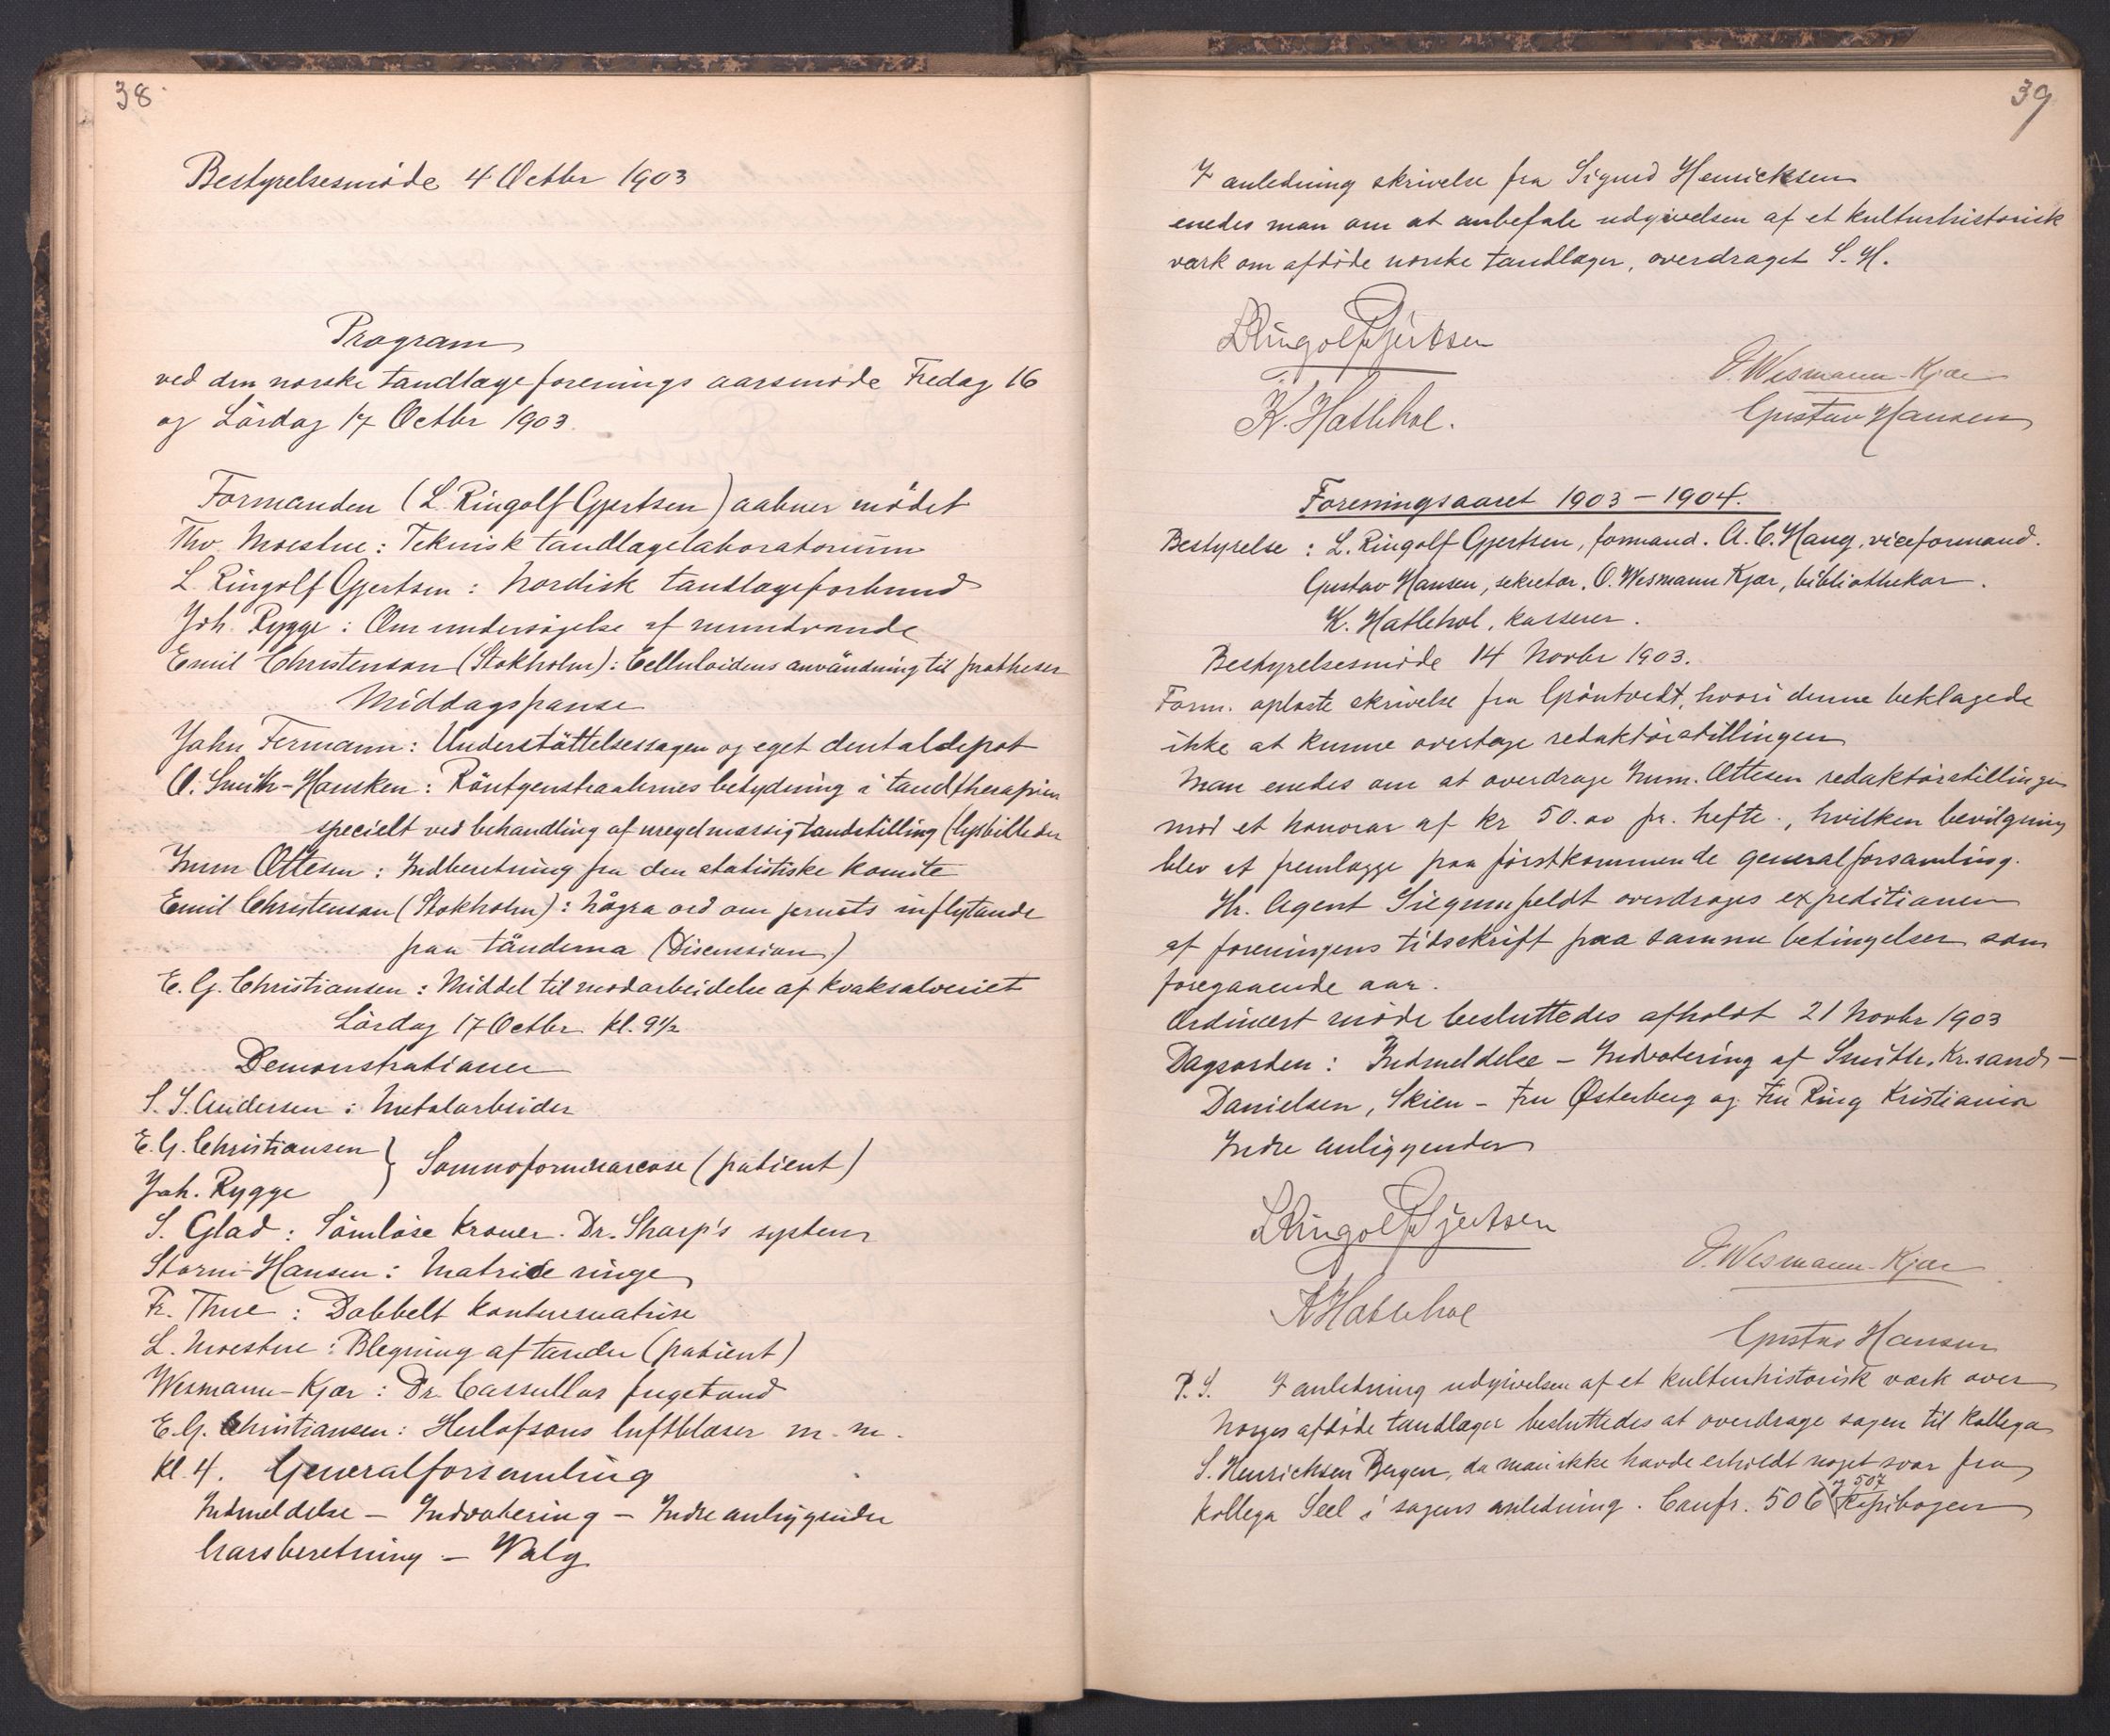 38
Bestyrelsesmöde 4 Octbr 1903
Program
ved den norske tandlægeforenings aarsmöde Fredag 16
og Lördag 17 Octbr 1903.
Formanden (L. Ringolf Gjertsen) aabner mödet
Thv. Moestue: Teknisk tandlægelaboratorium
L. Ringolf Gjertsen: Nordisk tandlægeforbund
Joh. Rygge: Om undersögelse af mundvande
Emil Christenson (Stokholm): Celluloidens användning til protheser
Middagspause
John Fermann: Understöttelsessagen og eget dentaldepot
O. Smith-Housken: Röntgenstraalernes betydning i tandtherapien
specielt ved behandling af uregelmæssig tandstilling (lysbilleder
Imm Ottesen: Indberetning fra den statistiske komite
Emil Christenson (Stokholm): Några ord om jernets inflytande
paa tänderna (Discussion)
E. G. Christiansen: Middel til modarbeidelse af kvaksalveriet
Lördag 17 Octbr kl. 9½
Demonstrationer
S. S. Andersen: Metalarbeider
E. G. Christiansen
Joh. Rygge } Somnoformnarcose (patient)
S. Glad: Sömlöse kroner. Dr. Sharp's system
Storm-Hansen: Matrice ringe
Fr. Thue: Dobbelt konturmatrise
L. Moestue: Blegning af tænder (patient)
Wesmann-Kjær: Dr. Cassullos fugetand
E. G. Christiansen: Herlofsons luftblæser m. m.
Kl. 4. Generalforsamling
Indmeldelse – Indvotering – Indre anliggender
Aarsberetning – Valg
39
I anledning skrivelse fra Sigurd Henricksen
enedes man om at anbefale udgivelsen af et kulturhistorisk
værk om afdöde norske tandlæger, overdraget S. H.
L Ringolf Gjertsen
O. Wesmann-Kjær
K. Hatlehol.
Gustav Hansen
Foreningsaaret 1903 – 1904.
Bestyrelse: L. Ringolf Gjertsen, formand. A. C. Haug, viceformand.
Gustav Hansen, sekretær. O. Wesmann Kjær, bibliothekar.
K. Hatlehol, kasserer.
Bestyrelsesmöde 14 Novbr 1903.
Form. oplæste skrivelse fra Gröntvedt, hvori denne beklagede
ikke at kunne overtage redaktörstillingen
Man enedes om at overdrage Imm. Ottesen redaktörstillingen
mod et honorar af kr 50.00 pr. hefte., hvilken bevilgning
blev at fremlægge paa förstkommende generalforsamling.
Hr. Agent Siegumfeldt overdrages expeditionen
af foreningens tidsskrift paa samme betingelser som
foregaaende aar.
Ordinært möde besluttedes afholdt 21 Novbr 1903
Dagsorden: Indmeldelse – Indvotering af Smith, Kr.sand –
Danielsen, Skien – Fru Østerberg og Fru Ring Kristiania
Indre anliggender
L Ringolf Gjertsen
O. Wesmann-Kjær
K Hatlehol
Gustav Hansen
P. S. I anledning udgivelsen af et kulturhistorisk værk over
Norges afdöde tandlæger besluttedes at overdrage sagen til kollega
S. Henricksen Bergen, da man ikke havde erholdt noget svar fra
kollega Seel i sagens anledning. Confr. 506 og 507 Kopibogen